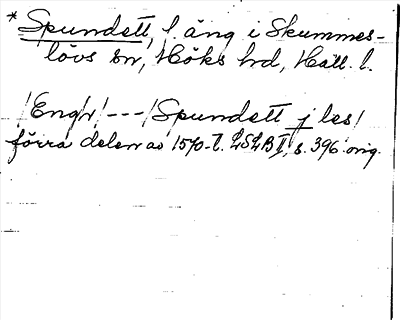 * Spundett, f. äng i Skummes-
lövs sn, Höks hd, Hall. l.
/Engh/ --- /Spundett j les/
förra delen av 1570-t. LSLB II, s. 396. orig.